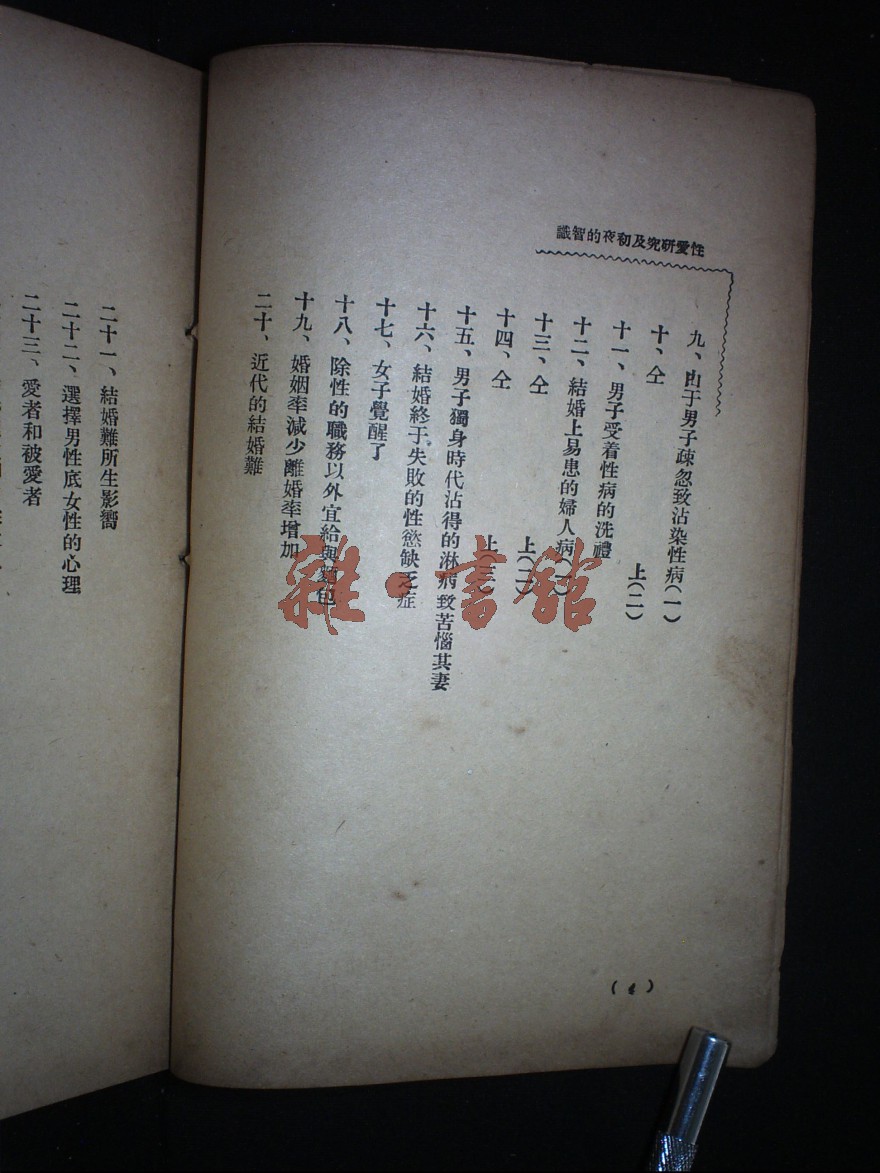 性愛研究及初夜的智識
九、由于男子疎忽致沾染性病(一)
十、仝　上(二)
十一、男子受着性病的洗禮
十二、結婚上易患的婦人病(一)
十三、仝　上(二)
十四、仝　上(三)
十五、男子獨身時代沾得的淋病致苦惱其妻
十六、結婚終于失敗的性慾缺乏症
十七、女子覺醒了
十八、除性的職務以外宜給與麵包
十九、婚姻率減少離婚率增加
二十、近代的結婚難
二十一、結婚難所生影嚮
二十二、選擇男性底女性的心理
二十三、愛者和被愛者
雜·書館